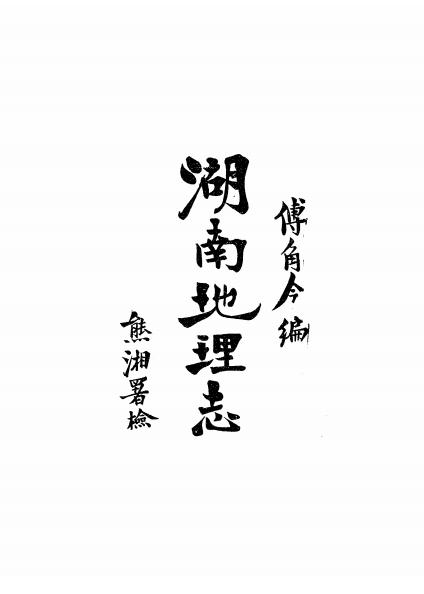 傅角今編
湖南地理志
熊湘署檢